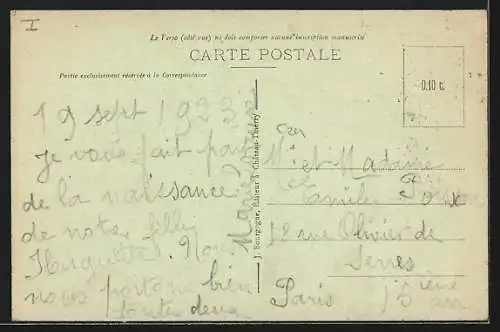 I
Le Verso (côté vue) ne doit comporter aucune inscription manuscrite
CARTE POSTALE
Partie exclusivement réservée à la Correspondance
0.10 c
19 sept 1923
Je vous fait part
de la naissance
de notre fille
Huguette. Nous
nous portons bien
toutes deux
Marie
J. Bourgogne, Éditeur à Château-Thierry
Mr et Madame
Emile
18 rue Olivier de
Serres
Paris 15 ième